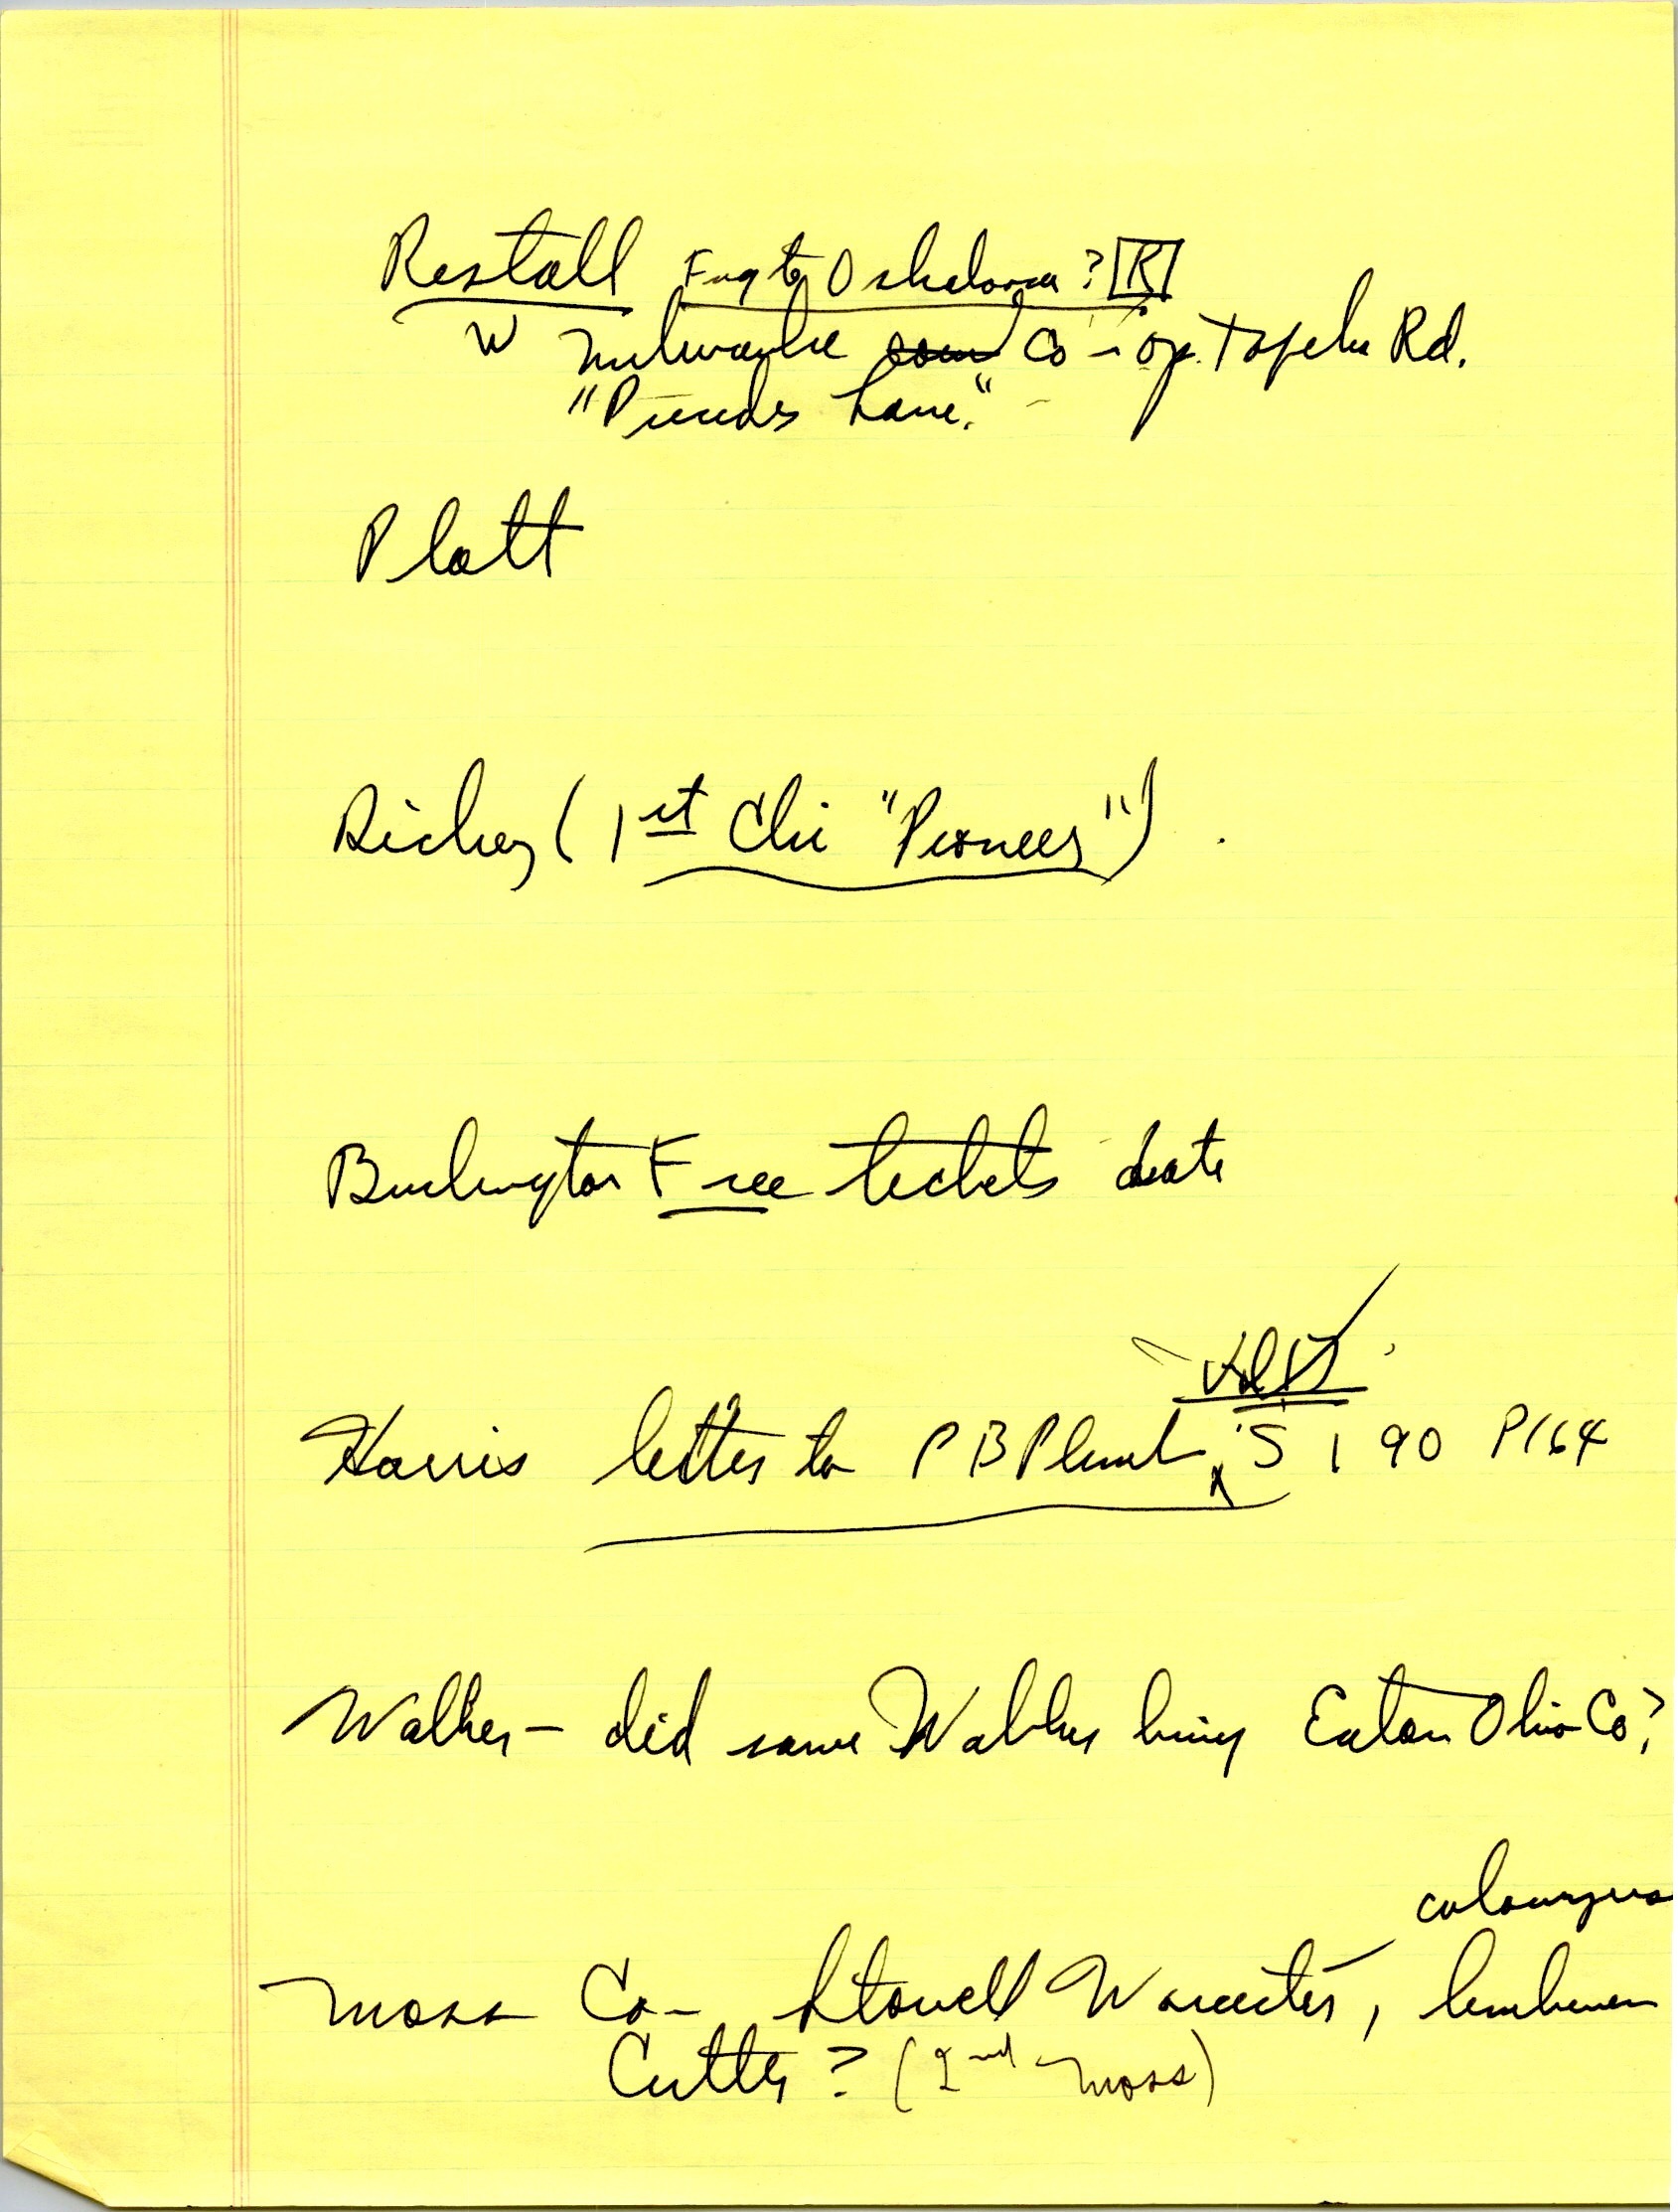 Restall Eng to Oskaloosa ? R
W Milwaukee Co-op. Topeka Rd.
" Lane."
Platt
Richey (1st Chi "Pioneer")
Burlington Free tickets date
Vol V
Harris letter to P B Plumb, 5 1 90 P164
Walker - did some Walker bring Eaton Ohio Co?
Moss Co - Stowell Worcester,
Cutter ? (2nd Moss)